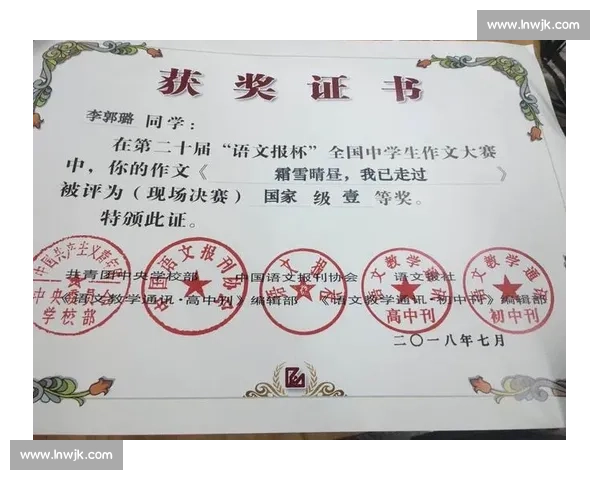 www.lnwjk.com
获奖证书
李郭璐 同学：
在第二十届“语文报杯”全国中学生作文大赛
中，你的作文《 霜雪晴昼，我已走过 》
被评为（现场决赛） 国家 级 壹 等奖。
特颁此证。
共青团中央学校部 中国语文报刊协会 语文报社
《语文教学通讯·高中刊》编辑部 《语文教学通讯·初中刊》编辑部
中国共产主义青年
中央委员会
学校部
中国语文报刊协会
语文报社
语文教学通讯
高中刊
语文教学通讯
初中刊
二〇一八年七月
www.lnwjk.com